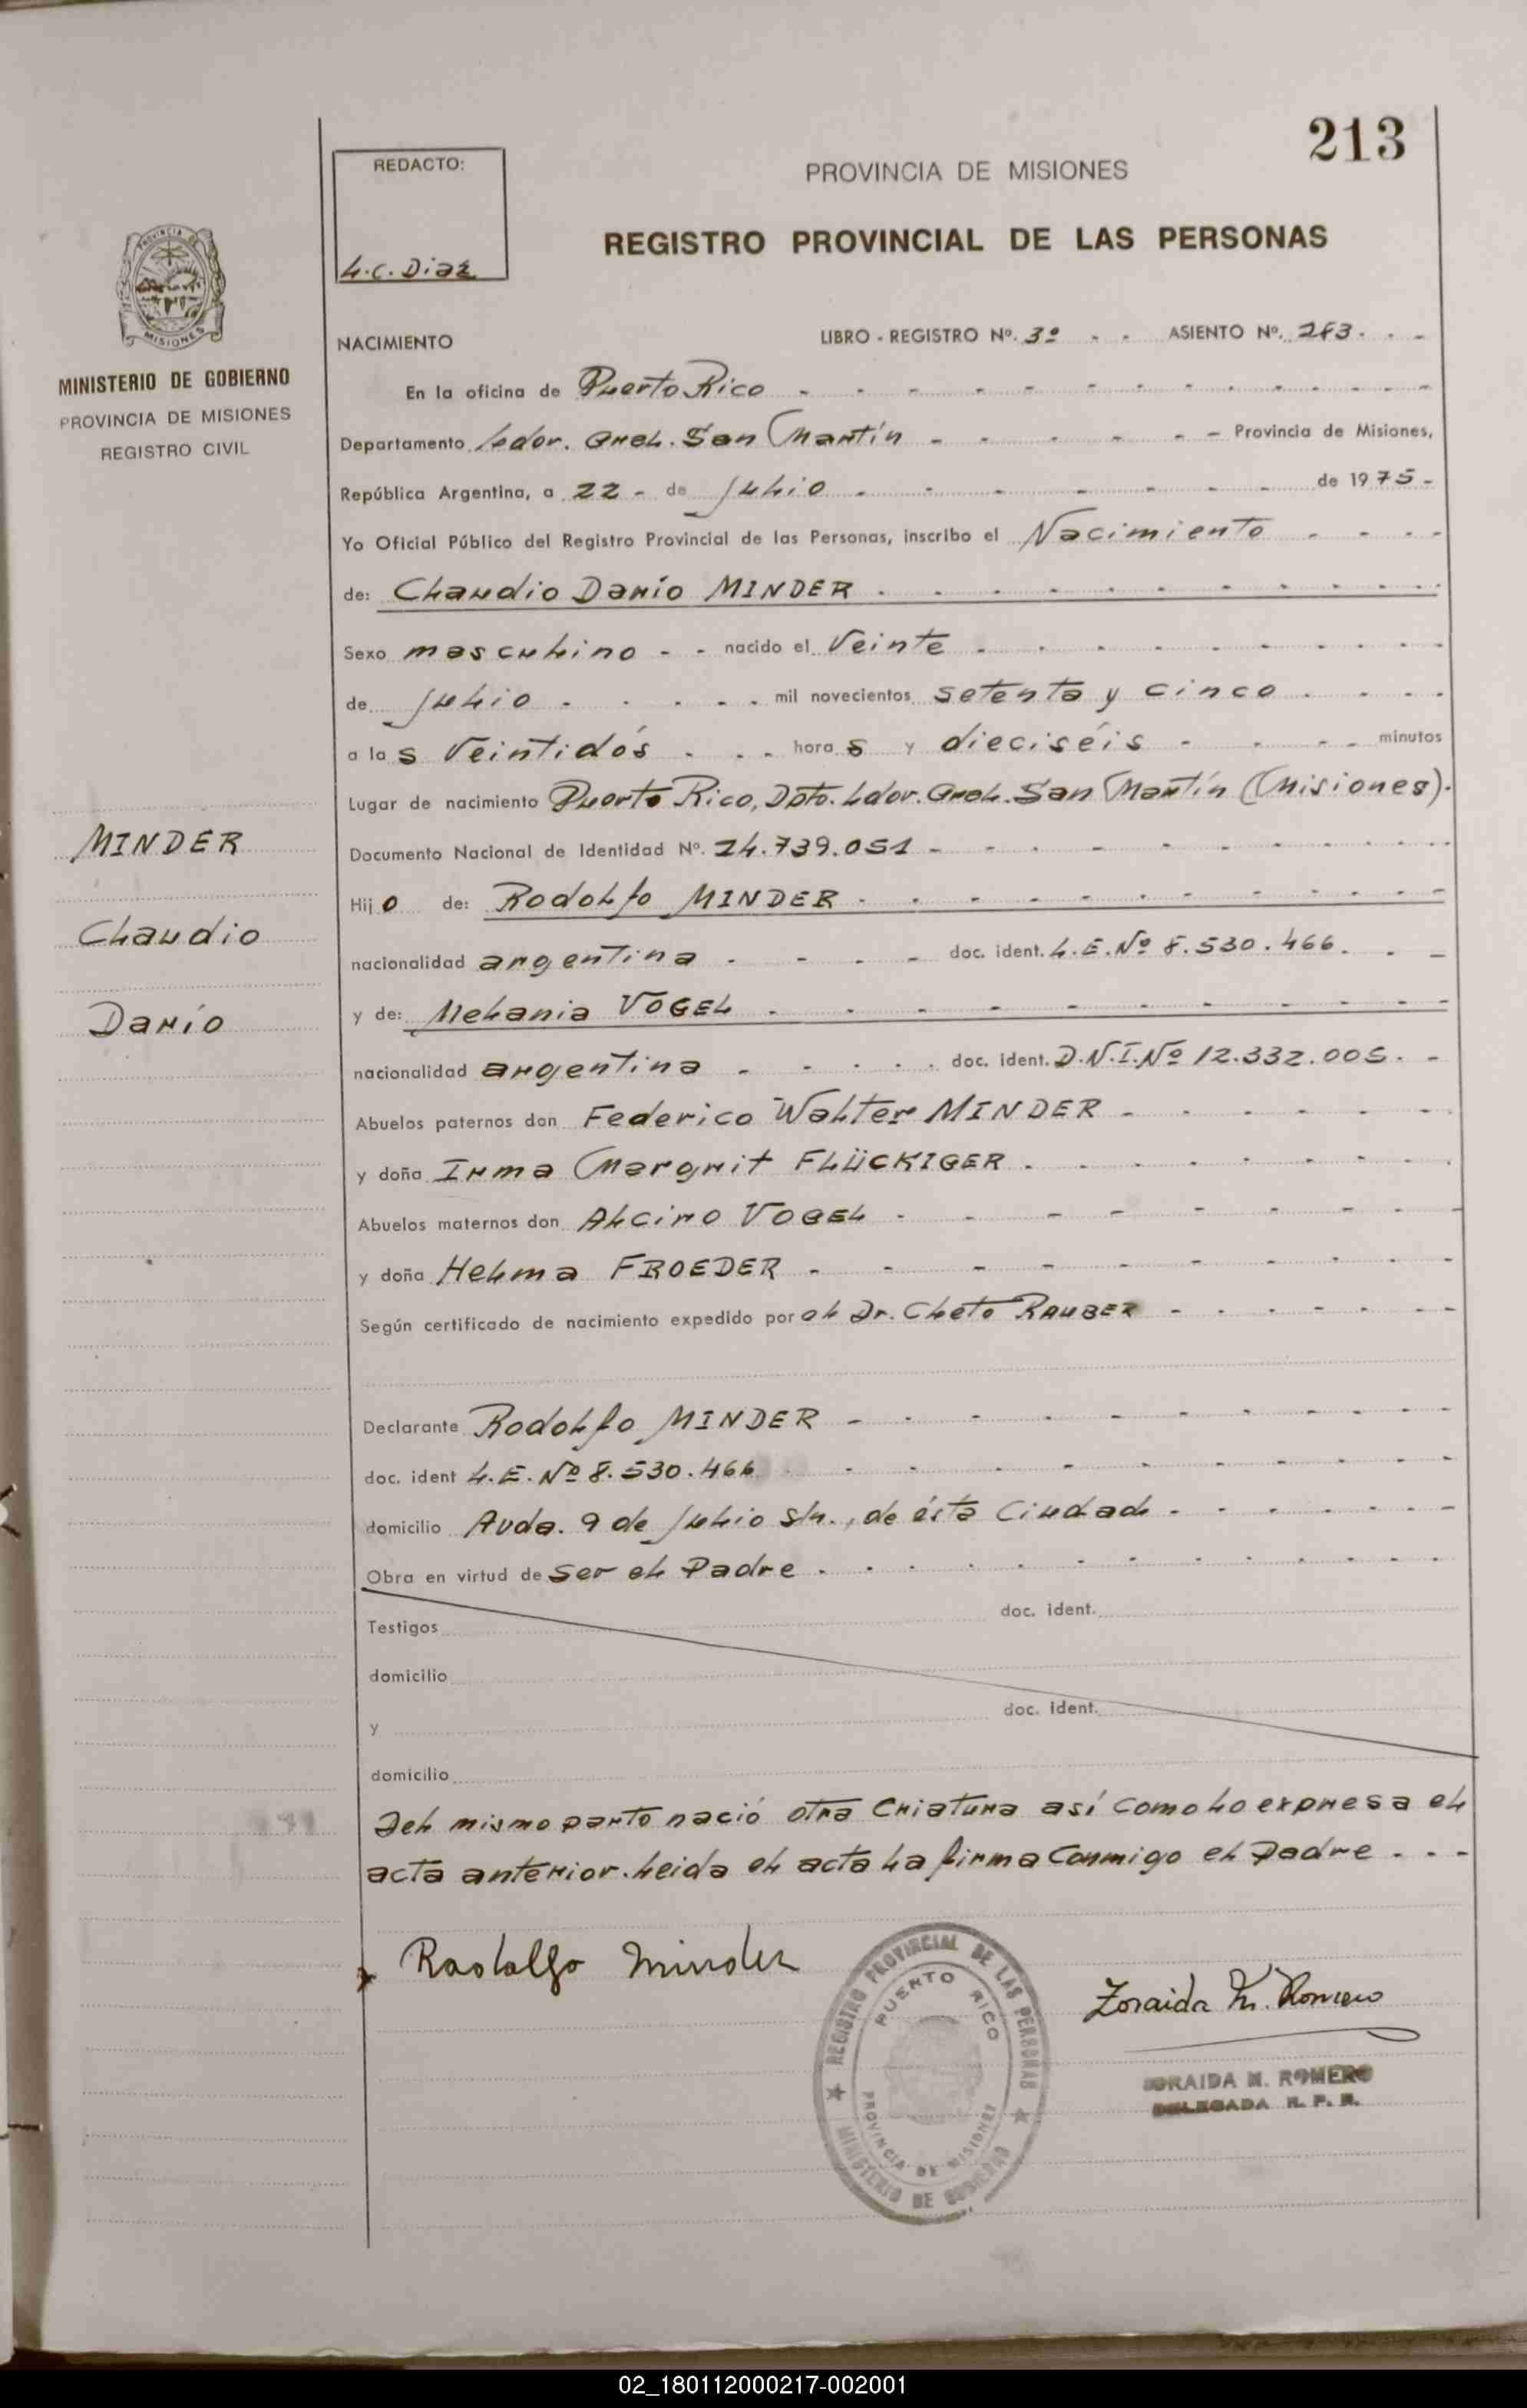 213
REDACTO:
L.C. Díaz
PROVINCIA DE MISIONES
REGISTRO PROVINCIAL DE LAS PERSONAS
PROVINCIA DE
MISIONES
MINISTERIO DE GOBIERNO
PROVINCIA DE MISIONES
REGISTRO CIVIL
NACIMIENTO LIBRO - REGISTRO Nº. 3º - - ASIENTO Nº. 283. - -
En la oficina de Puerto Rico
Departamento Ldor. Gral. San Martín - Provincia de Misiones,
República Argentina, a 22 - de Julio - de 1975 -
Yo Oficial Público del Registro Provincial de las Personas, inscribo el Nacimiento
de: Claudio Darío MINDER
Sexo masculino - - nacido el Veinte
de Julio - mil novecientos setenta y cinco
a las Veintidós - horas y dieciséis - minutos
Lugar de nacimiento Puerto Rico, Dpto. Ldor. Gral. San Martín (Misiones).
Documento Nacional de Identidad Nº. 24.739.051 -
Hijo de: Rodolfo MINDER
nacionalidad argentina - doc. ident. L.E. Nº 8.530.466.
y de: Melania VOGEL
nacionalidad argentina - doc. ident. D.N.I. Nº 12.332.005. -
Abuelos paternos don Federico Walter MINDER
y doña Irma Margrit FLÜCKIGER
Abuelos maternos don Alciro VOGEL
y doña Helma FROEDER
Según certificado de nacimiento expedido por el Dr. Cleto RAUBER
Declarante Rodolfo MINDER
doc. ident L.E. Nº 8.530.466
domicilio Avda. 9 de Julio s/n., de ésta Ciudad
Obra en virtud de ser el Padre
Testigos doc. ident.
domicilio
y doc. ident.
domicilio
Del mismo parto nació otra Criatura así como lo expresa el
acta anterior. Leida el acta la firma Conmigo el Padre - - -
MINDER
Claudio
Darío
Rodolfo Minder
REGISTRO PROVINCIAL DE LAS PERSONAS
PUERTO RICO
PROVINCIA DE MISIONES
MINISTERIO DE GOBIERNO
Zoraida M. Romero
ZORAIDA M. ROMERO
DELEGADA R. P. P.
02_180112000217-002001